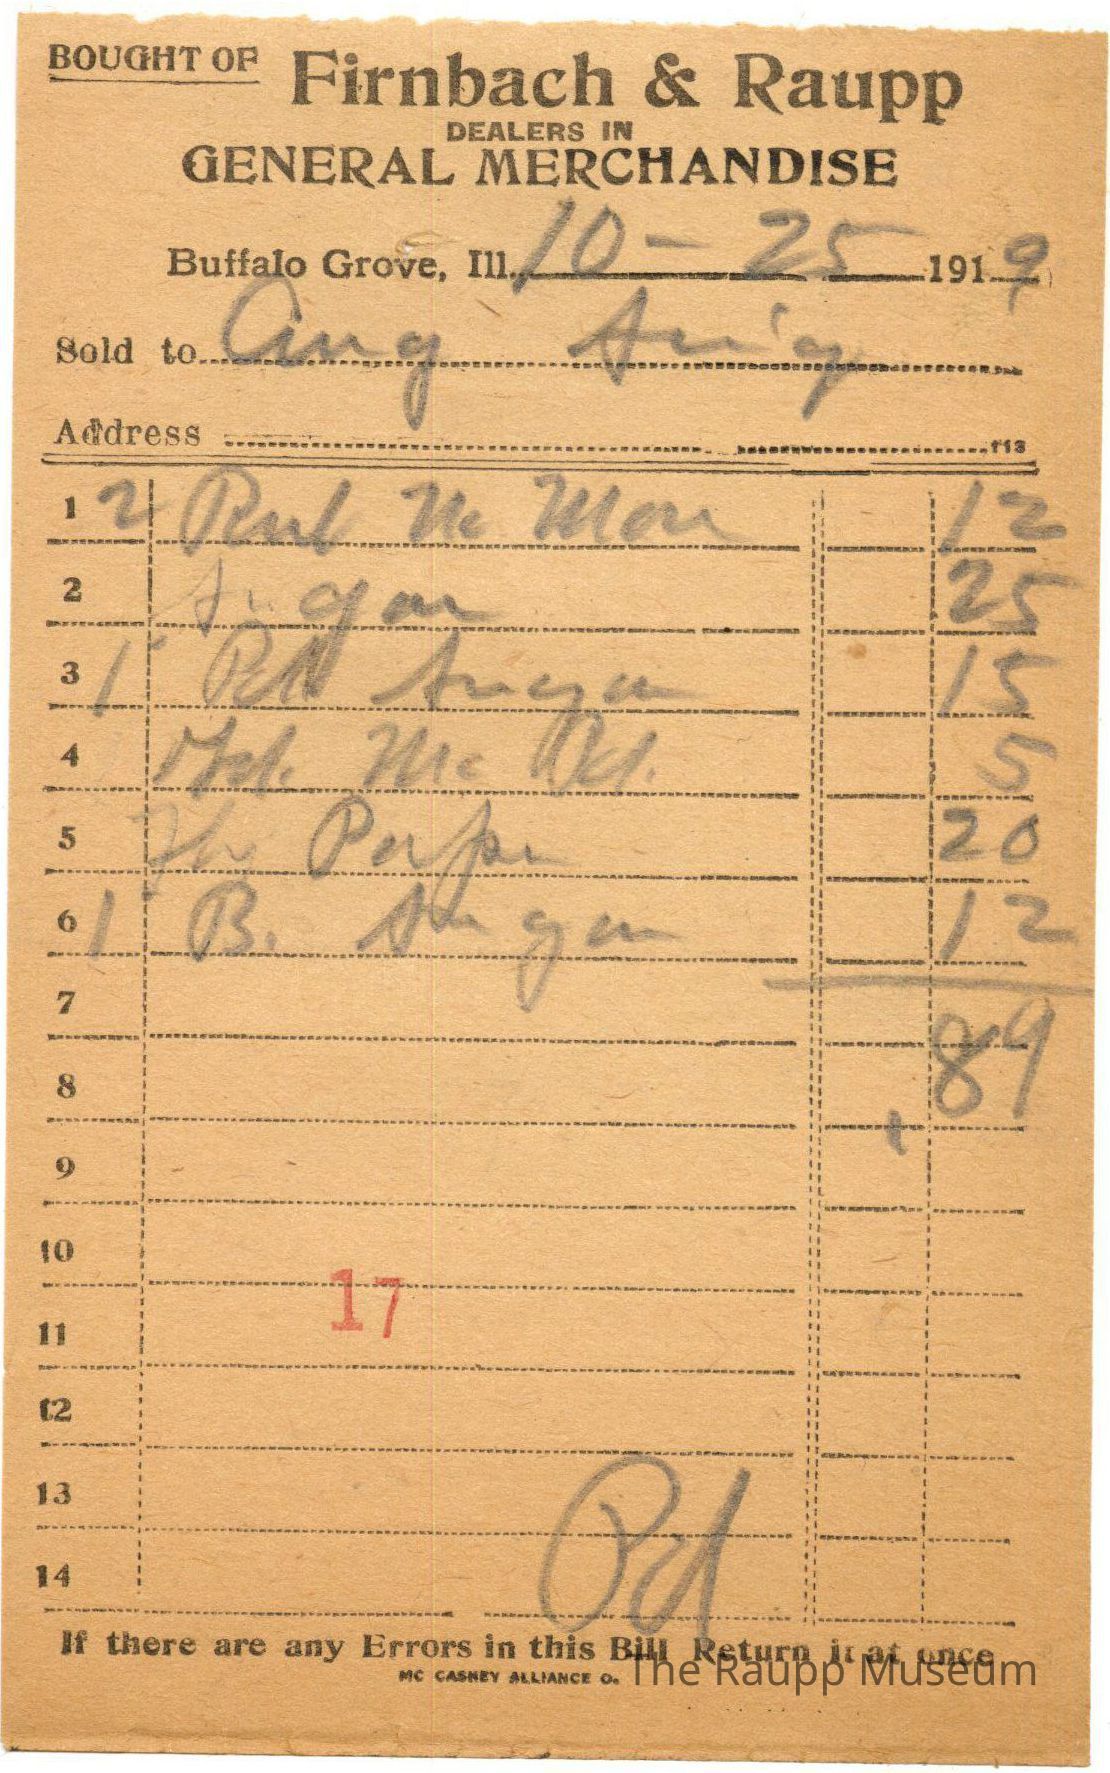 BOUGHT OF Firnbach & Raupp
DEALERS IN
GENERAL MERCHANDISE
Buffalo Grove, Ill. 10 - 25 1919
Sold to Aug
Address 113
1 2 12
2 Sugar 25
3 1 Sugar 15
4 5
5 20
6 1 B. Sugar 12
7 89
8
9
10
17
11
12
13
14 Pd
If there are any Errors in this Bill Return it at once
MC CASKEY ALLIANCE O.
The Raupp Museum